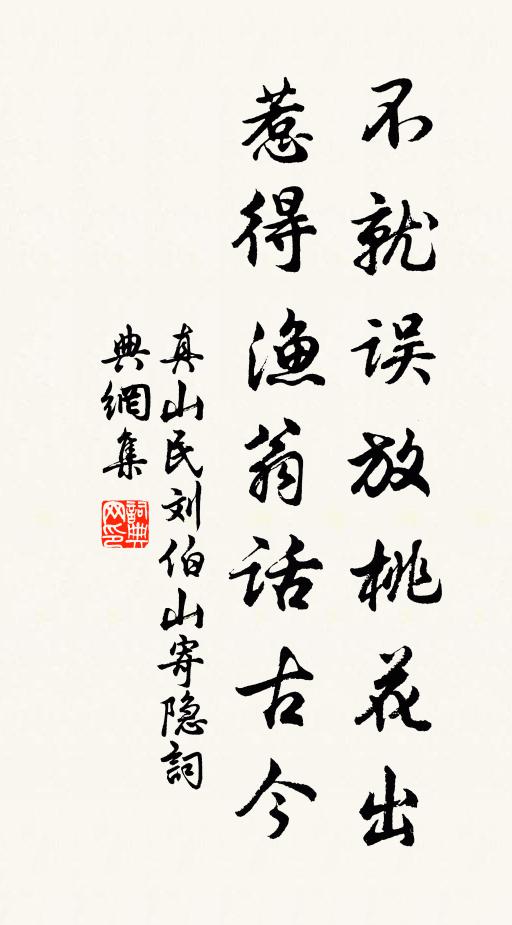 不就误放桃花出
惹得漁翁話古今
真山民刘伯山寄隐詞
典網集
詞典
网印